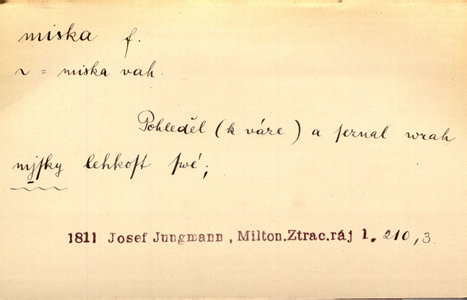 miska f.
~ = miska vah.
Pohleděl (k váze) a seznal wrah
mysky lehkost swé;
1811 Josef Jungmann, Milton, Ztrac. ráj 1. 210, 3.